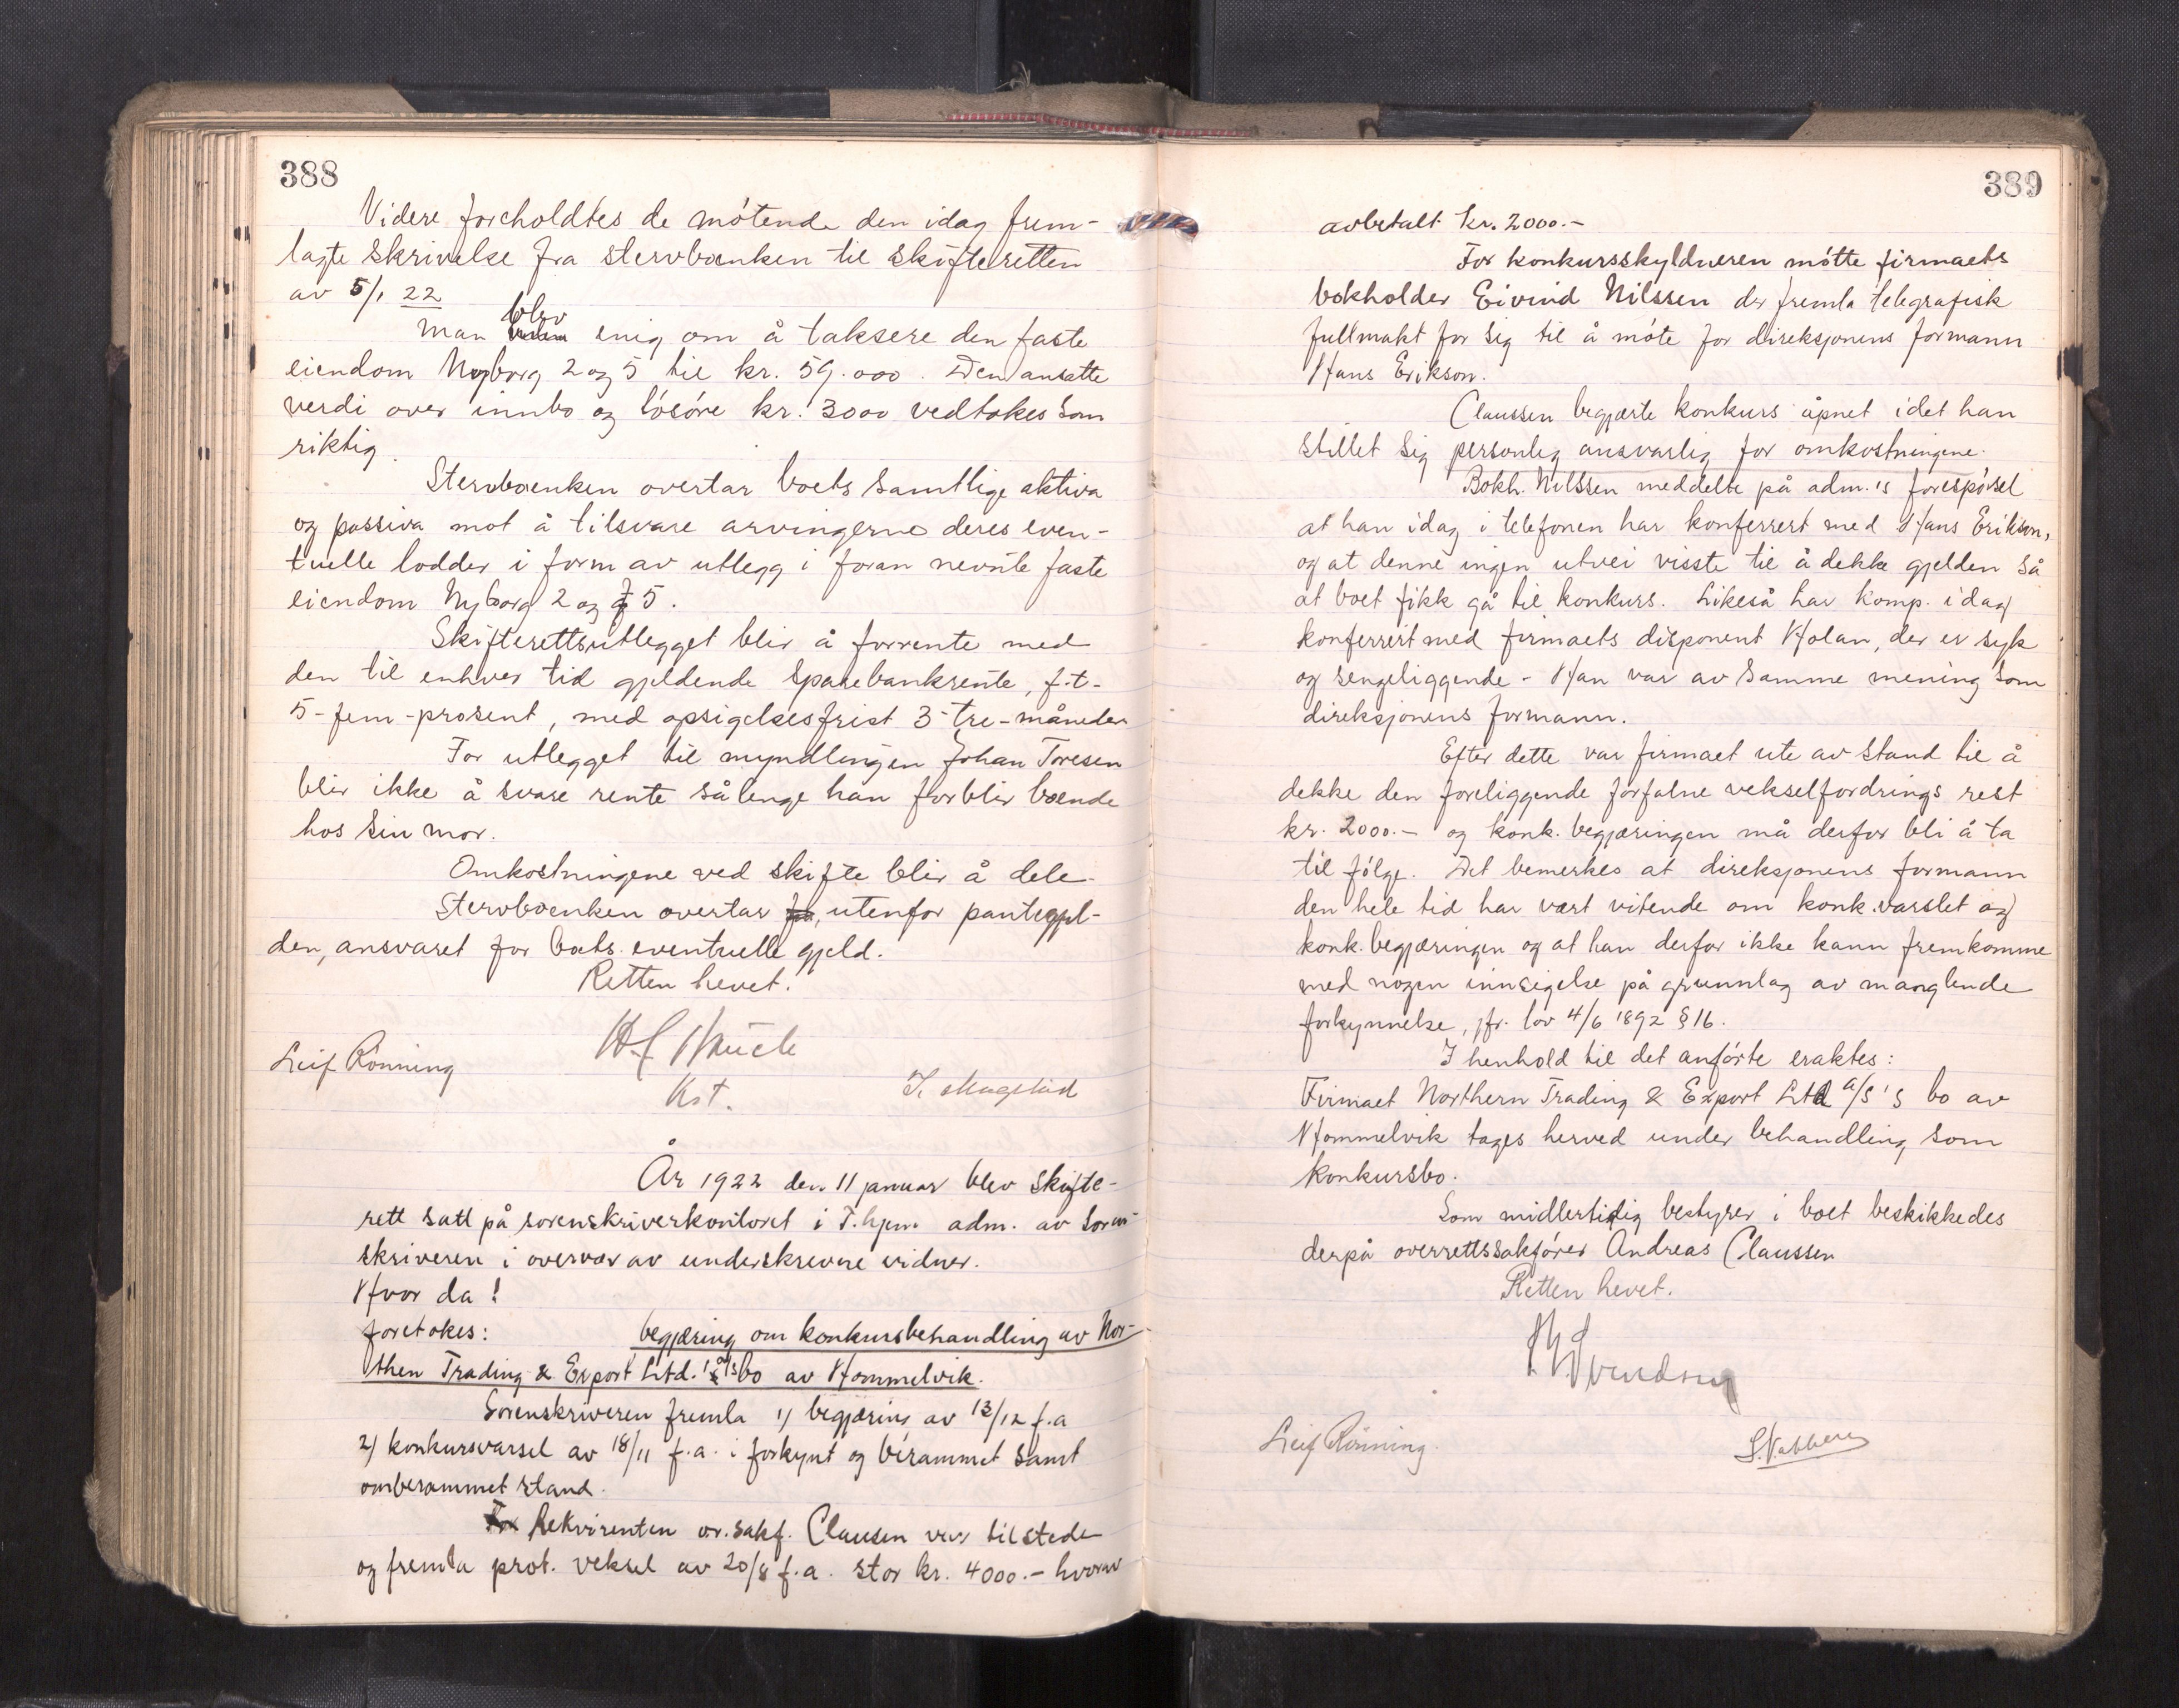 388
Videre forcholdtes de møtende den idag frem-
lagte skrivelse fra stervboenken til skifteretten
av 5/1 22
Man blev enig om å taksere den faste
eiendom Nyborg 2 og 5 til kr. 59.000. Den ansatte
verdi over innbo og løsøre kr. 3000 vedtokes som
riktig.
Stervboenken overtar boets samtlige aktiva
og passiva mot å tilsvare arvingerne deres even-
tuelle lodder i form av utlegg i foran nevnte faste
eiendom Nyborg 2 og 5.
Skifterettsutlegget blir å forrente med
den til enhver tid gjeldende sparebankrente, f.t.
5-fem-prosent, med opsigelsesfrist 3-tre-måneder
For utlegget til myndlingen Johan Toresen
blir ikke å svare rente sålenge han forblir boende
hos sin mor.
Omkostningene ved skifte blir å dele
Stervboenken overtar, utenfor pantegjel-
den, ansvaret for boets eventuelle gjeld.
Retten hevet.
Kst.
Leif Rønning
År 1922 den 11 januar blev skifte-
rett satt på sorenskriverkontoret i T.hjem adm. av soren-
skriveren i overvær av underskrevne vidner.
Hvor da!
foretokes: begjæring om konkursbehandling av Nor-
then Trading & Export Ltd. a/s's bo av Hommelvik.
Sorenskriveren fremla 1) begjæring av 13/12 f.a
2) konkursvarsel av 18/11 f.a. i forkynt og berammet samt
omberammet stand.
Rekvirenten or.sakf. Clausen var tilstede
og fremla prot. veksel av 20/8 f.a. stor kr. 4000.- hvorav
389
avbetalt kr. 2000.-
For konkursskyldneren møtte firmaets
bokholder Eivind Nilssen der fremla telegrafisk
fullmakt for sig til å møte for direksjonens formann
Hans Erikson.
Claussen begjærte konkurs åpnet idet han
stillet sig personlig ansvarlig for omkostningene.
Bokh. Nilssen meddelte på adm.'s forespørsel
at han idag i telefonen har konferrert med Hans Erikson,
og at denne ingen utvei visste til å dekke gjelden så
at boet fikk gå til konkurs. Likeså har komp. idag
konferrert med firmaets disponent Holan, der er syk
og sengeliggende - Han var av samme mening som
direksjonens formann.
Efter dette var firmaet ute av stand til å
dekke den foreliggende forfalne vekselfordrings rest
kr. 2000.- og konk. begjæringen må derfor bli å ta
til følge. Det bemerkes at direksjonens formann
den hele tid har vært vitende om konk.varslet og
konk. begjæringen og at han derfor ikke kann fremkomme
med nogen innsigelse på grunnlag av manglende
forkynnelse, jfr. lov 4/6 1892 § 16.
I henhold til det anførte eraktes:
Firmaet Northern Trading & Export Ltd a/s's bo av
Hommelvik tages herved under behandling som
konkursbo.
Som midlertidig bestyrer i boet beskikkedes
derpå overrettssakfører Andreas Claussen
Retten hevet.
Leif Rønning.